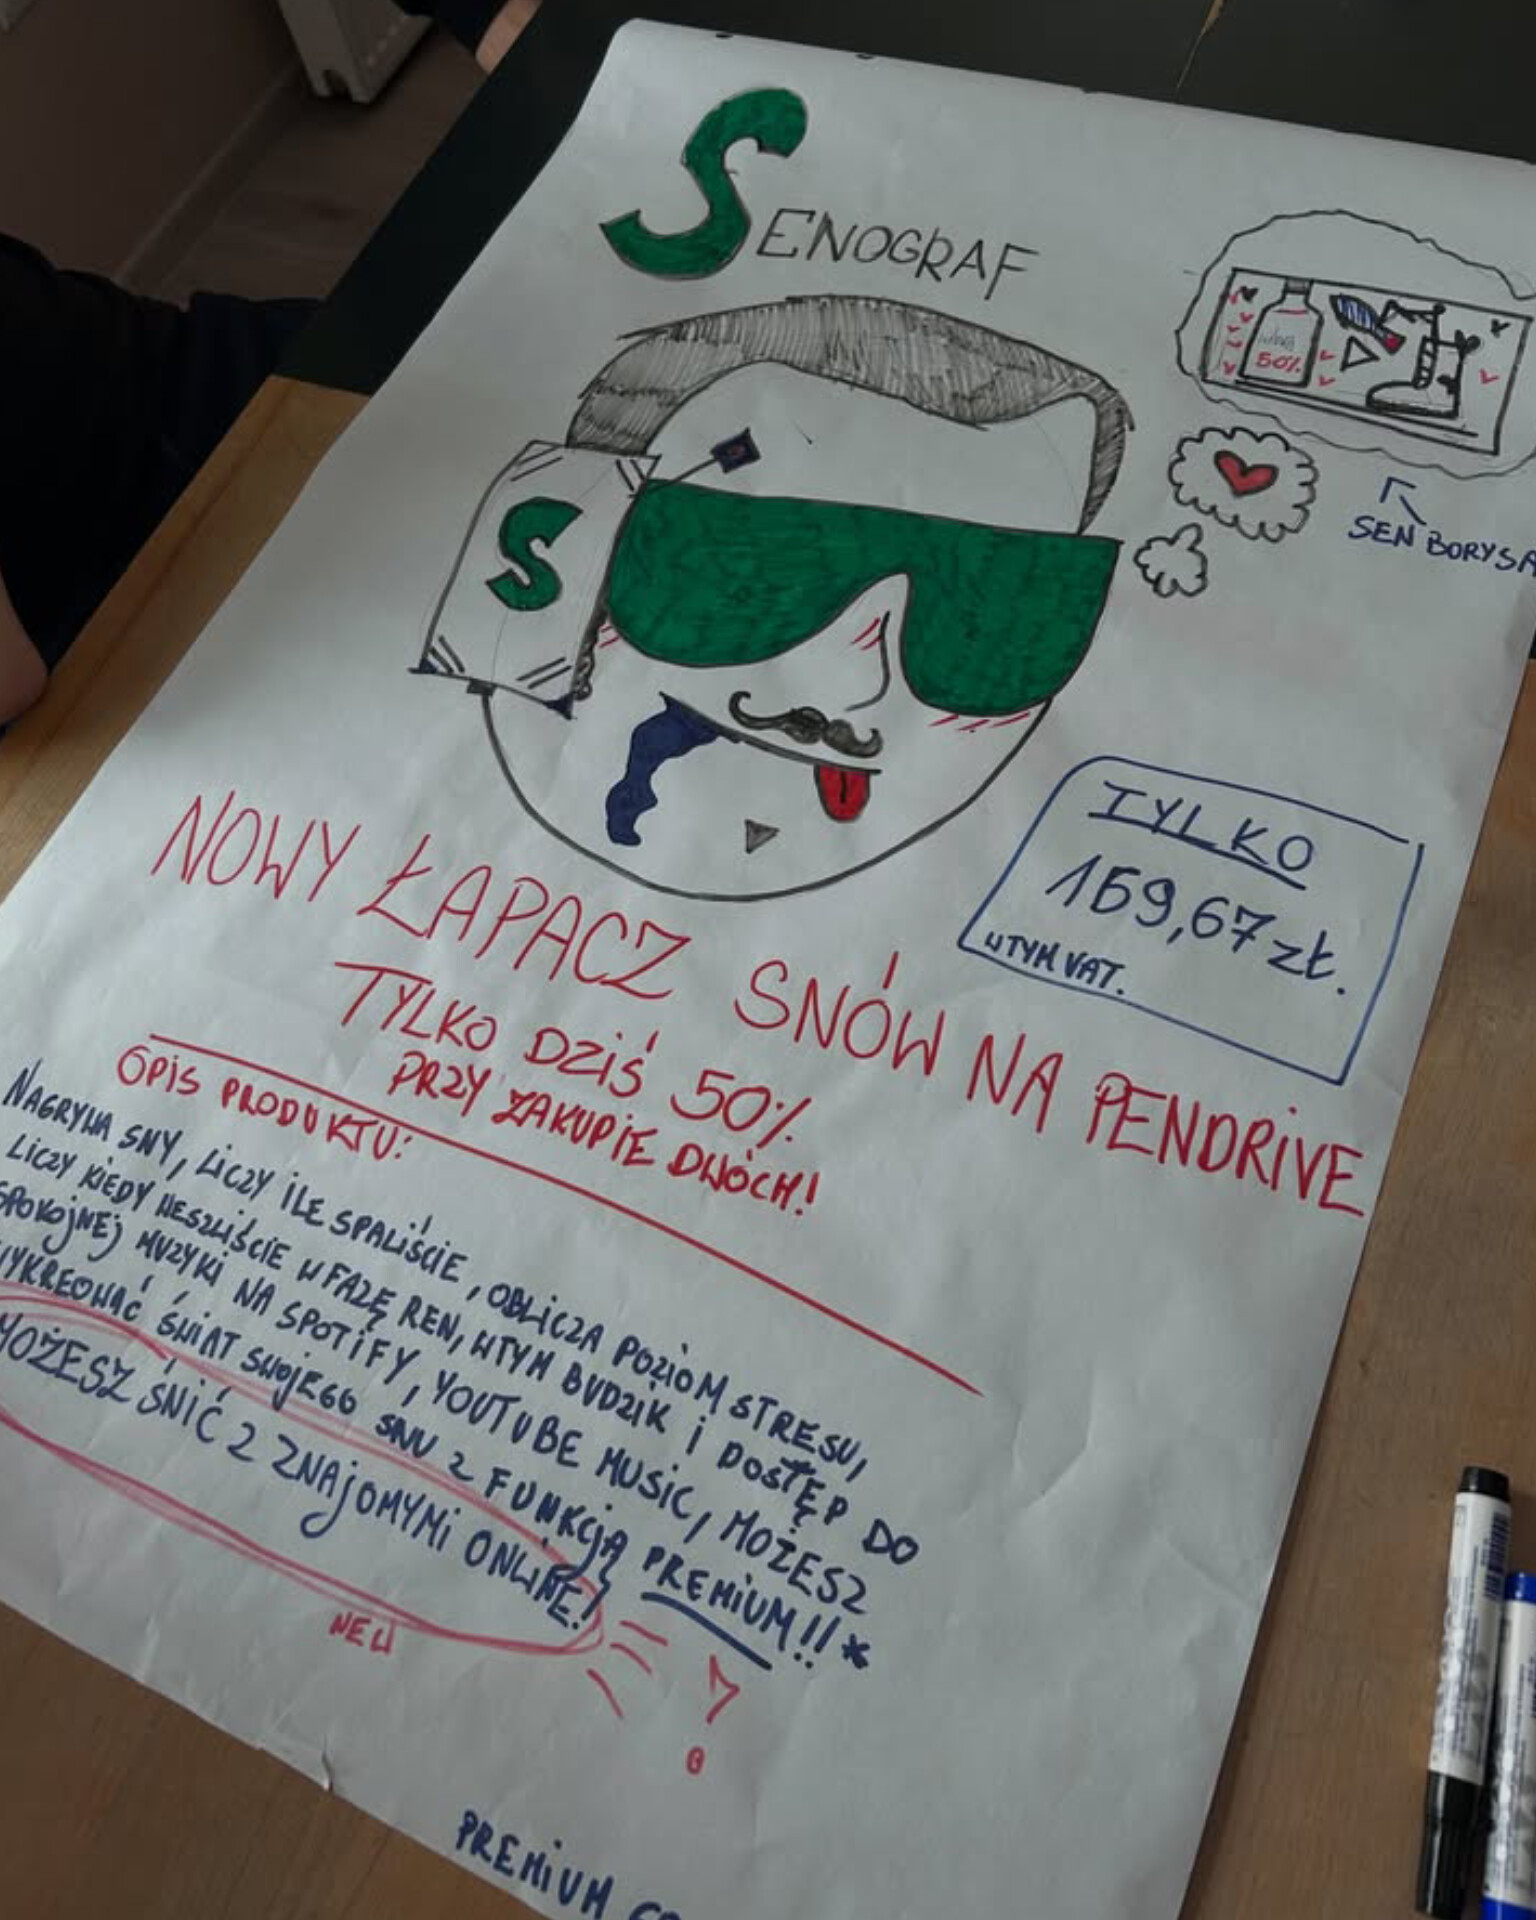 SENOGRAF
50%
SEN BORYSA
S
TYLKO
169,67 zł.
WTYM VAT.
NOWY ŁAPACZ SNÓW NA PENDRIVE
TYLKO DZIŚ 50%
PRZY ZAKUPIE DWÓCH!
OPIS PRODUKTU:
NAGRYWA SNY, LICZY ILE SPALIŚCIE, OBLICZA POZIOM STRESU,
LICZY KIEDY WESZLIŚCIE W FAZĘ REN, WTYM BUDZIK I DOSTĘP DO
SPOKOJNEJ MUZYKI NA SPOTIFY, YOUTUBE MUSIC, MOŻESZ
WYKREOWAĆ ŚWIAT SWOJEGO SNU Z FUNKCJĄ PREMIUM!!*
MOŻESZ ŚNIĆ Z ZNAJOMYMI ONLINE!
NEW
PREMIUM